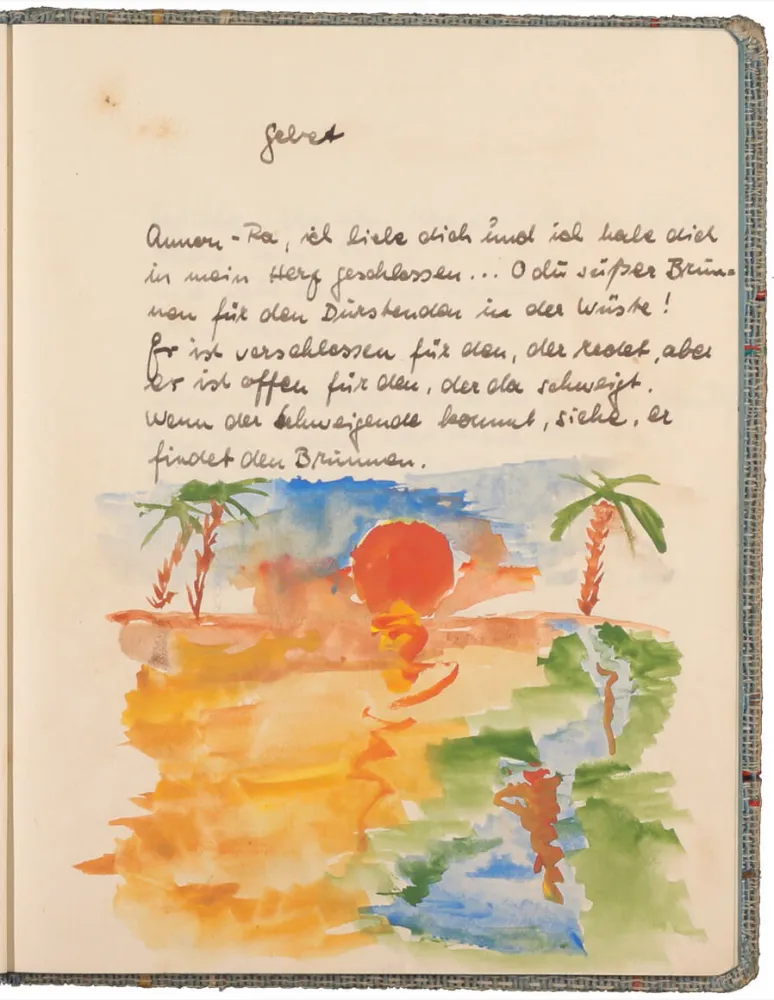 Gebet
Ammon-Ra, ich liebe dich und ich habe dich
in mein Herz geschlossen... O du süßer Brun-
nen für den Dürstenden in der Wüste!
Er ist verschlossen für den, der redet, aber
er ist offen für den, der da schweigt.
Wenn der Schweigende kommt, siehe, er
findet den Brunnen.